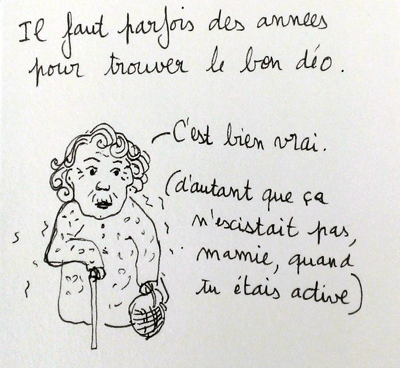 Il faut parfois des années
pour trouver le bon déo.
C'est bien vrai.
(d'autant que ça
n'existait pas,
mamie, quand
tu étais active)